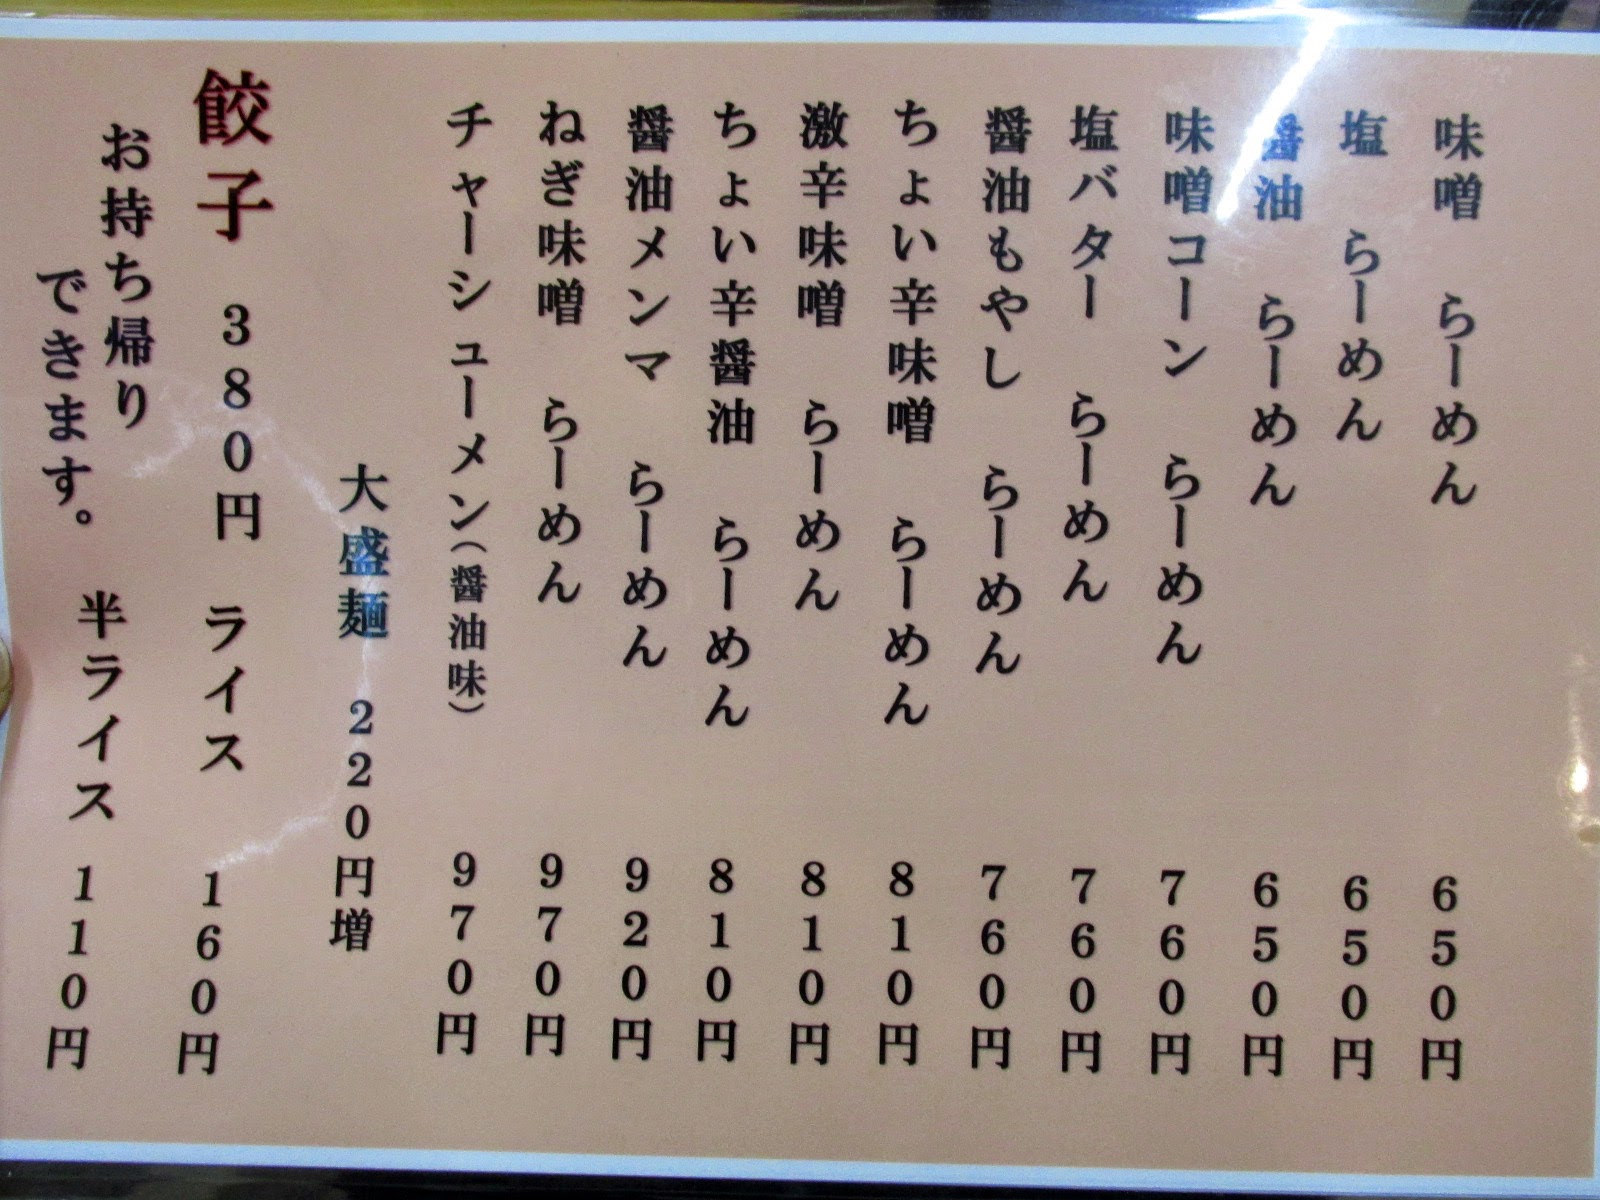 味噌 らーめん 650円
塩 らーめん 650円
醤油 らーめん 650円
味噌コーン らーめん 760円
塩バター らーめん 760円
醤油もやし らーめん 760円
ちょい辛味噌 らーめん 810円
激辛味噌 らーめん 810円
ちょい辛醤油 らーめん 810円
醤油メンマ らーめん 920円
ねぎ味噌 らーめん 970円
チャーシューメン(醤油味) 970円
大盛麺 220円増
餃子 380円 ライス 160円
お持ち帰り
できます。 半ライス 110円